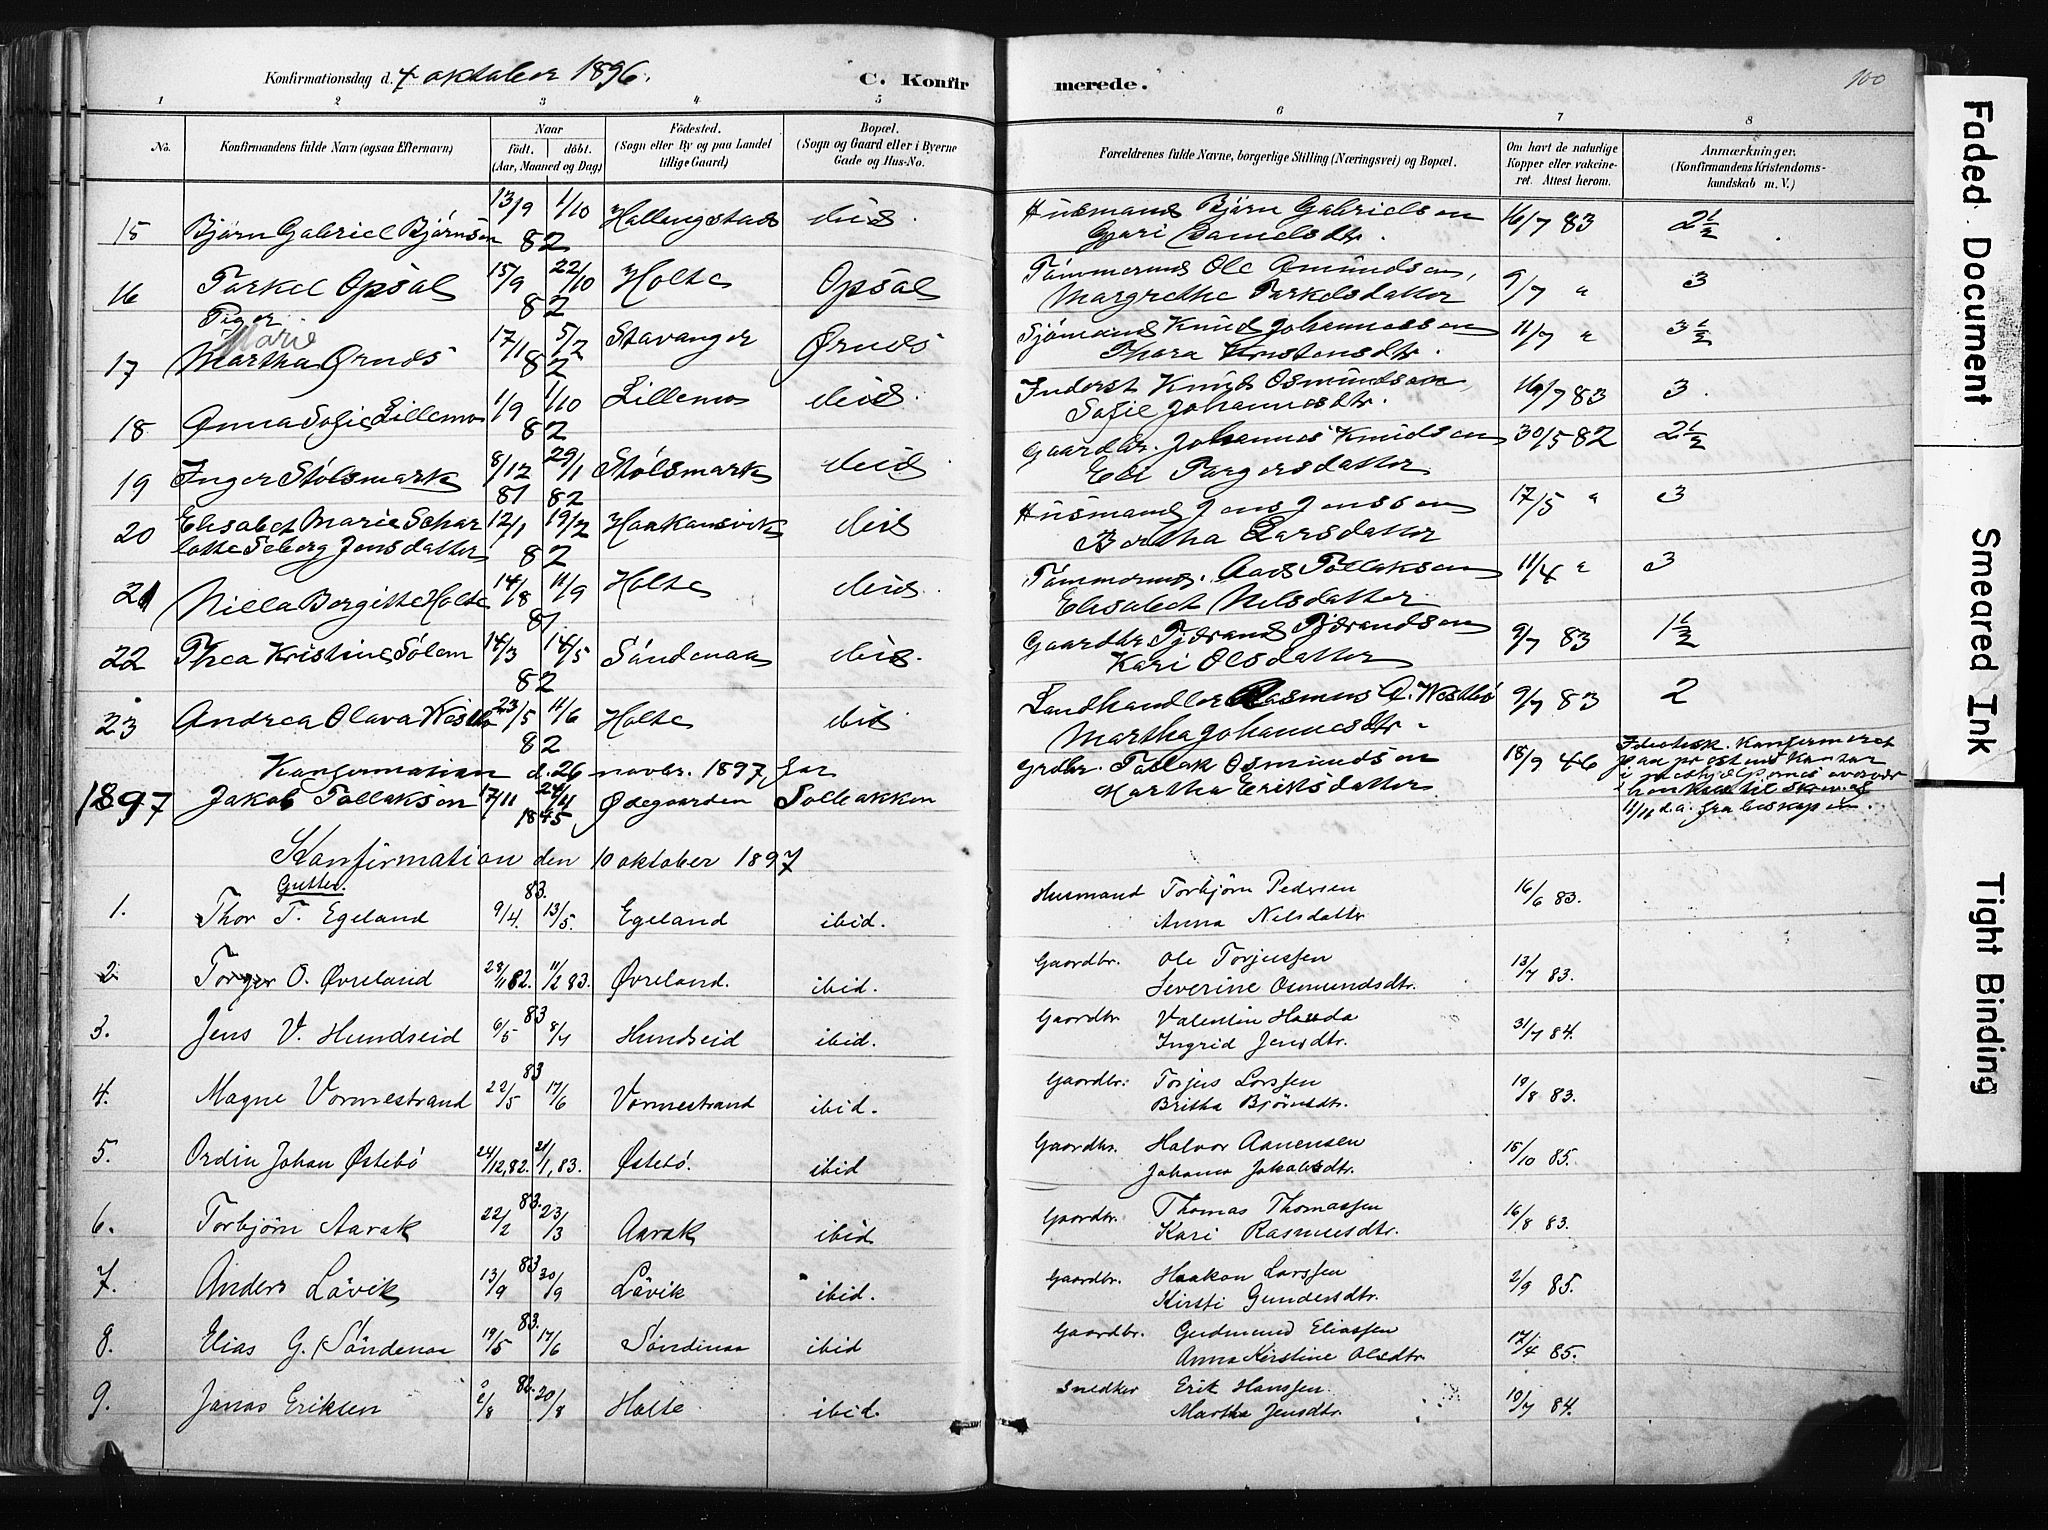 Konfirmationsdag d. 4 oktober 1896.
C. Konfirmerede.
100
1 2 3 4 5 6 7 8
No.
Konfirmandens fulde Navn (ogsaa Efternavn)
Naar
Födt. döbt.
(Aar, Maaned og Dag)
Födested.
(Sogn eller By og paa Landet tillige Gaard)
Bopæl.
(Sogn og Gaard eller i Byerne Gade og Hus-No.
Forældrenes fulde Navne, borgerlige Stilling (Næringsvei) og Bopæl.
Om havt de naturlige Kopper eller vaccineret. Attest herom.
Anmærkninger.
(Konfirmandens Kristendomskundskab m. V.)
15 Bjørn Gabriel Bjørnsen 13/9 1/10 82 Hallingstad ibid. Husmand Bjørn Gabrielsen 16/7 83 2½
16 Torkel Opsal 15/9 22/10 82 Holte Opsal Tømmermd Ole Omundsen, 9/7 " 3
Margrethe Torkelsdatter
Piger.
Marie
17 Martha Ørnes 17/1 5/2 82 Stavanger Ørnes Sjømand Knud Johannessen 11/7 " 3½
Thora Kristensdtr.
18 Anna Sofie Lillemo 1/9 1/10 82 Lillemo ibid. Inderst Knud Osmundsen 16/7 83 3.
Sofie Johannesdtr.
19 Inger Stølsmark 8/12 81 29/1 82 Stølsmark ibid Gaardbr. Johannes Knudsen 30/5 82 2½
Eli Torgersdatter
20 Elisabet Marie Schar 12/1 19/2 82 Haakonsvik ibid Husmand Jens Jenssen 17/5 " 3
lotte Seberg Jensdatter Bertha Larsdatter
21 Nilla Bergitte Holte 14/8 11/9 81. Holte ibid. Tømmermd. Aad Tollaksen 11/4 " 3
Elisabet Nilsdatter
22 Thea Kristine Solem 14/3 14/5 82 Søndenaa ibid. Gaardbr Tjerand Tjerandsen 9/7 83 1½
Kari Olsdatter
23 Andrea Olava Westbø 23/5 11/6 82 Holte ibid Landhandler Rasmus A. Westbø 9/7 83 2
Martha Johannesdtr.
Konfirmation d. 26 novbr. 1897 for
1897 Jakob Tollaksen 17/11 24/11 1845, Ødegaarden Solbakken Grdbr. Tollak Osmundsen 18/9 46 Idiotisk. Konfirmeret
Martha Eriksdatter paa præstens kontor
i medhjelpernes overvær
11/11 d.a. fra biskopen.
Konfirmation den 10 oktober 1897
Gutter.
1. Thor T. Egeland 9/4. 83. 13/5. Egeland ibid. Husmand Torbjørn Pedersen 16/6 83.
Anna Nilsdattr
2 Torger O. Øvreland 28/11 82. 11/2 83. Øvreland. ibid. Gaardbr. Ole Torjussen 13/7 83.
Severine Osmundsdtr.
3. Jens V. Hundseid 6/5 83 8/7 Hundseid ibid. Gaardbr Valentin Hausda 31/7 84.
Ingrid Jensdtr.
4. Magne Vormestrand 22/5 83 17/6 Vormestrand ibid. Gaardbr: Torjus Larssen 19/8 83.
Britha Bjørnsdtr.
5. Ordin Johan Østebø 24/12,82. 21/1,83. Østebø. ibid Gaardbr. Halvor Aanensen 15/10 85.
Johanna Jakobsdtr.
6. Torbjørn Aarak 22/2 83. 23/3 Aarak ibid Gaardbr. Thomas Thomassen 16/8 83.
Kari Rasmusdtr.
7. Anders Løvik 13/9 83 30/9 Løvik ibid. Gaardbr. Haakon Larssen 2/9 85.
Kirsti Gundersdtr.
8. Elias G. Søndenaa 19/5 83. 17/6 Søndenaa ibid Gaardbr. Gudmund Eliassen 17/4 85.
Anna Kirstine Olsdtr
9. Jonas Eriksen 2/8 82. 20/8 Holte ibid. Snedker Erik Hanssen 19/7 84.
Martha Jensdtr.
Faded Document
Smeared Ink
Tight Binding